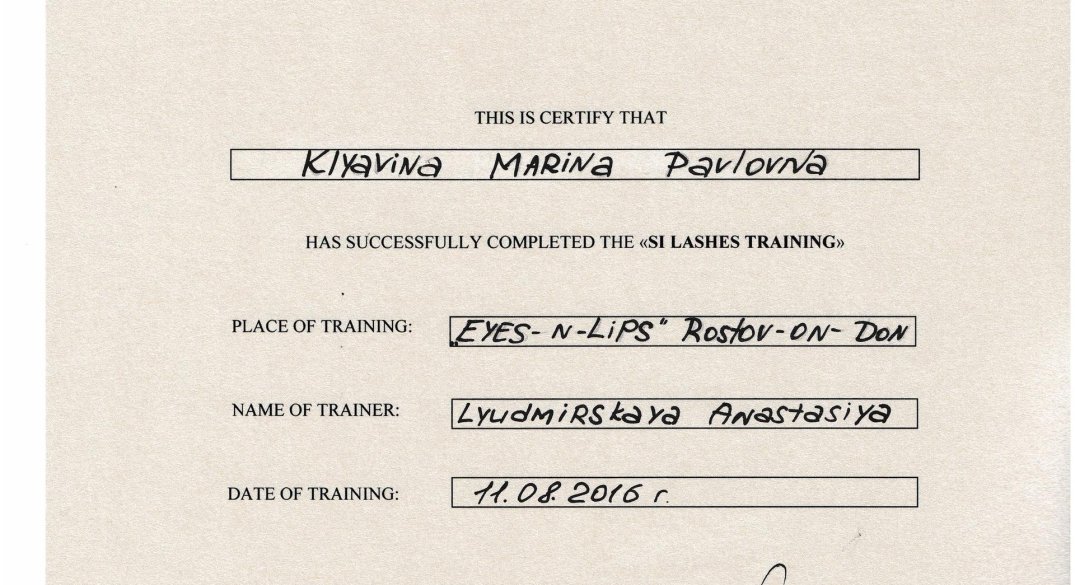 THIS IS CERTIFY THAT
Klyavina Marina Pavlovna
HAS SUCCESSFULLY COMPLETED THE «SI LASHES TRAINING»
PLACE OF TRAINING: „EYES-N-LiPS" Rostov-on-Don
NAME OF TRAINER: Lyudmirskaya Anastasiya
DATE OF TRAINING: 11.08.2016 г.